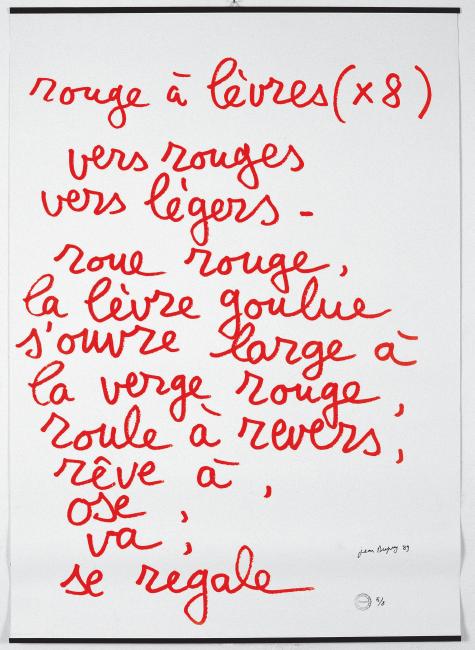 rouge à lèvres (x 8)
vers rouges
vers légers -
roue rouge,
la lèvre goulue
s'ouvre large à
la verge rouge,
roule à revers,
rêve à ,
ose ,
va ,
se regale
Jean Dupuy 89